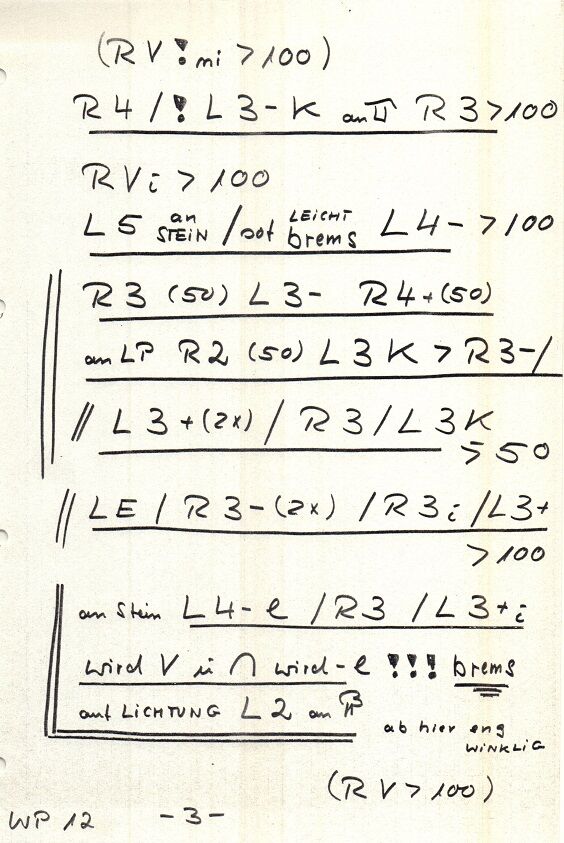 (RV ! mi > 100)
R4 / ! L3-K an R3 > 100
RVi > 100
L5 an STEIN / sot LEICHT brems L4- > 100
R3 (50) L3- R4+ (50)
an LP R2 (50) L3K > R3- /
// L3+ (2x) / R3 / L3K
> 50
// LE / R3- (2x) / R3i / L3+
> 100
an Stein L4-e / R3 / L3+i
wird V in ∩ wird-e !!! brems
auf LICHTUNG L2 an
ab hier eng
WINKLIG
(RV > 100)
WP 12 -3-